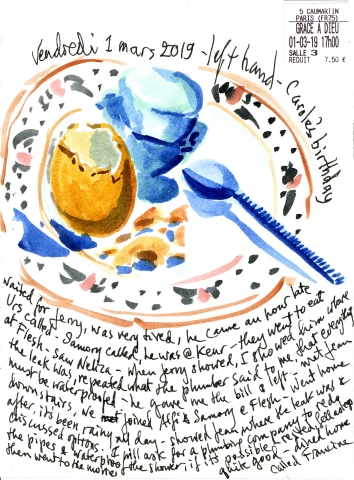 5 CAUMARTIN
PARIS (FR75)
GRACE A DIEU
01-03-19 17h00
SALLE 3
REDUIT 7.50 €
Vendredi 1 mars 2019 - left hand - Carole's birthday
waited for Jerry, was very tired, he came an hour late
Urs called - Samory called, he was @ Keur - they went to eat
at Flesh, saw - when Jerry showed, I showed him where
the leak was, repeated what the plumber said to me, that everything
must be waterproofed - he gave me the bill & left - met Jean
downstairs, we joined Alfi & Samory @ Flesh - went home
after, it's been rainy all day - showed Jean where the leak was &
discussed options, I will ask for a plumbing company to redo
the pipes & waterproof the shower if it's possible -
then went to the movies - quite good - dined home
called Francine